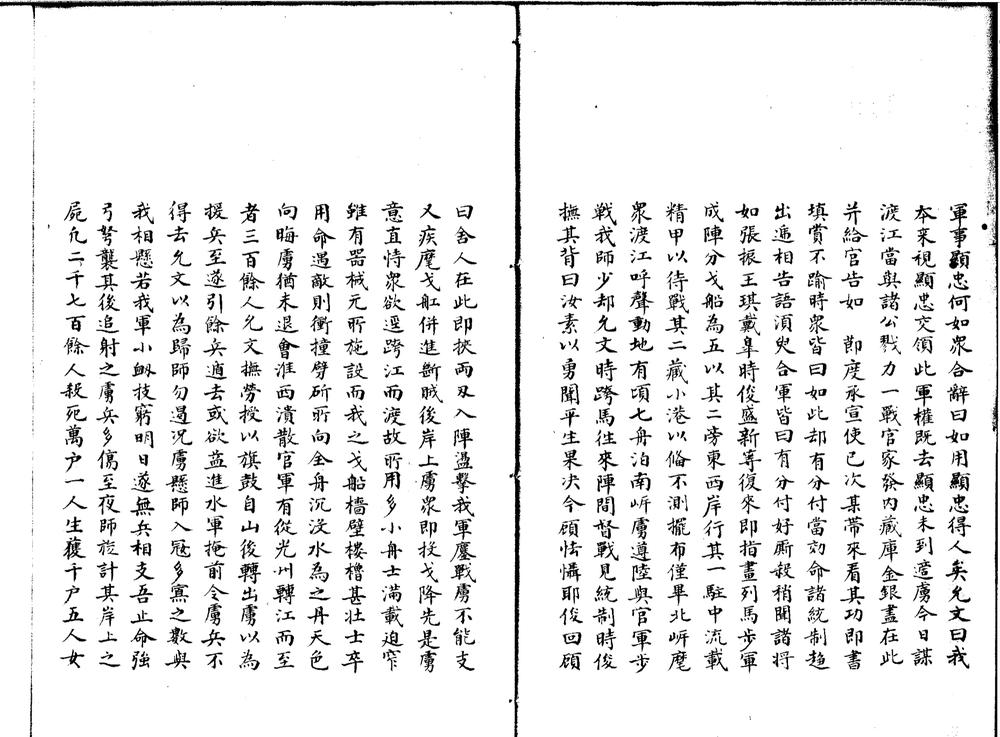 軍事顯忠何如衆合辭曰如用顯忠得人矣允文曰我
本来視顯忠交領此軍權既去顯忠未到適虜今日謀
渡江當與諸公戮力一戰官家發內藏庫金銀盡在此
并給官告如　節度承宣使已次某帶來看其功即書
填賞不踰時衆皆曰如此却有分付當効命諸統制趋
出遞相告語湏臾合軍皆曰有分付好厮殺稍聞諸将
如張振王琪戴皐時俊盛新等復來即指畫列馬步軍
成陣分戈船為五以其二旁東西岸行其一駐中流載
精甲以待戰其二藏小港以俻不測擺布僅畢北岍麾
衆渡江呼聲動地有頃七舟泊南岍虜遵陸與官軍步
戰我師少却允文時跨馬徃來陣間督戰見統制時俊
撫其背曰汝素以勇聞平生果决今顧怯懾耶俊回顧
曰舍人在此即挾兩刄入陣盪擊我軍鏖戰虜不能支
又疾麾戈舡併進斷贼後岸上虜衆即投戈降先是虜
意直恃衆欲逕跨江而渡故所用多小舟士滿載迫窄
雖有器械元所施設而我之戈船檣壁樓櫓甚壮士卒
用命遇敵則衝撞劈斫所向全舟沉没水為之丹天色
向晦虜猶未退會淮西潰散官軍有從光州轉江而至
者三百餘人允文撫勞授以旗鼓自山後轉出虜以為
援兵至遂引餘兵遁去或欲益進水軍掩前令虜兵不
得去允文以為歸師勿遏况虜懸師入冦多寡之數與
我相懸若我軍小衂技窮明日遂無兵相支吾止命強
弓弩襲其後追射之虜兵多傷至夜師旋計其岸上之
屍凢二千七百餘人殺死萬户一人生獲千户五人女